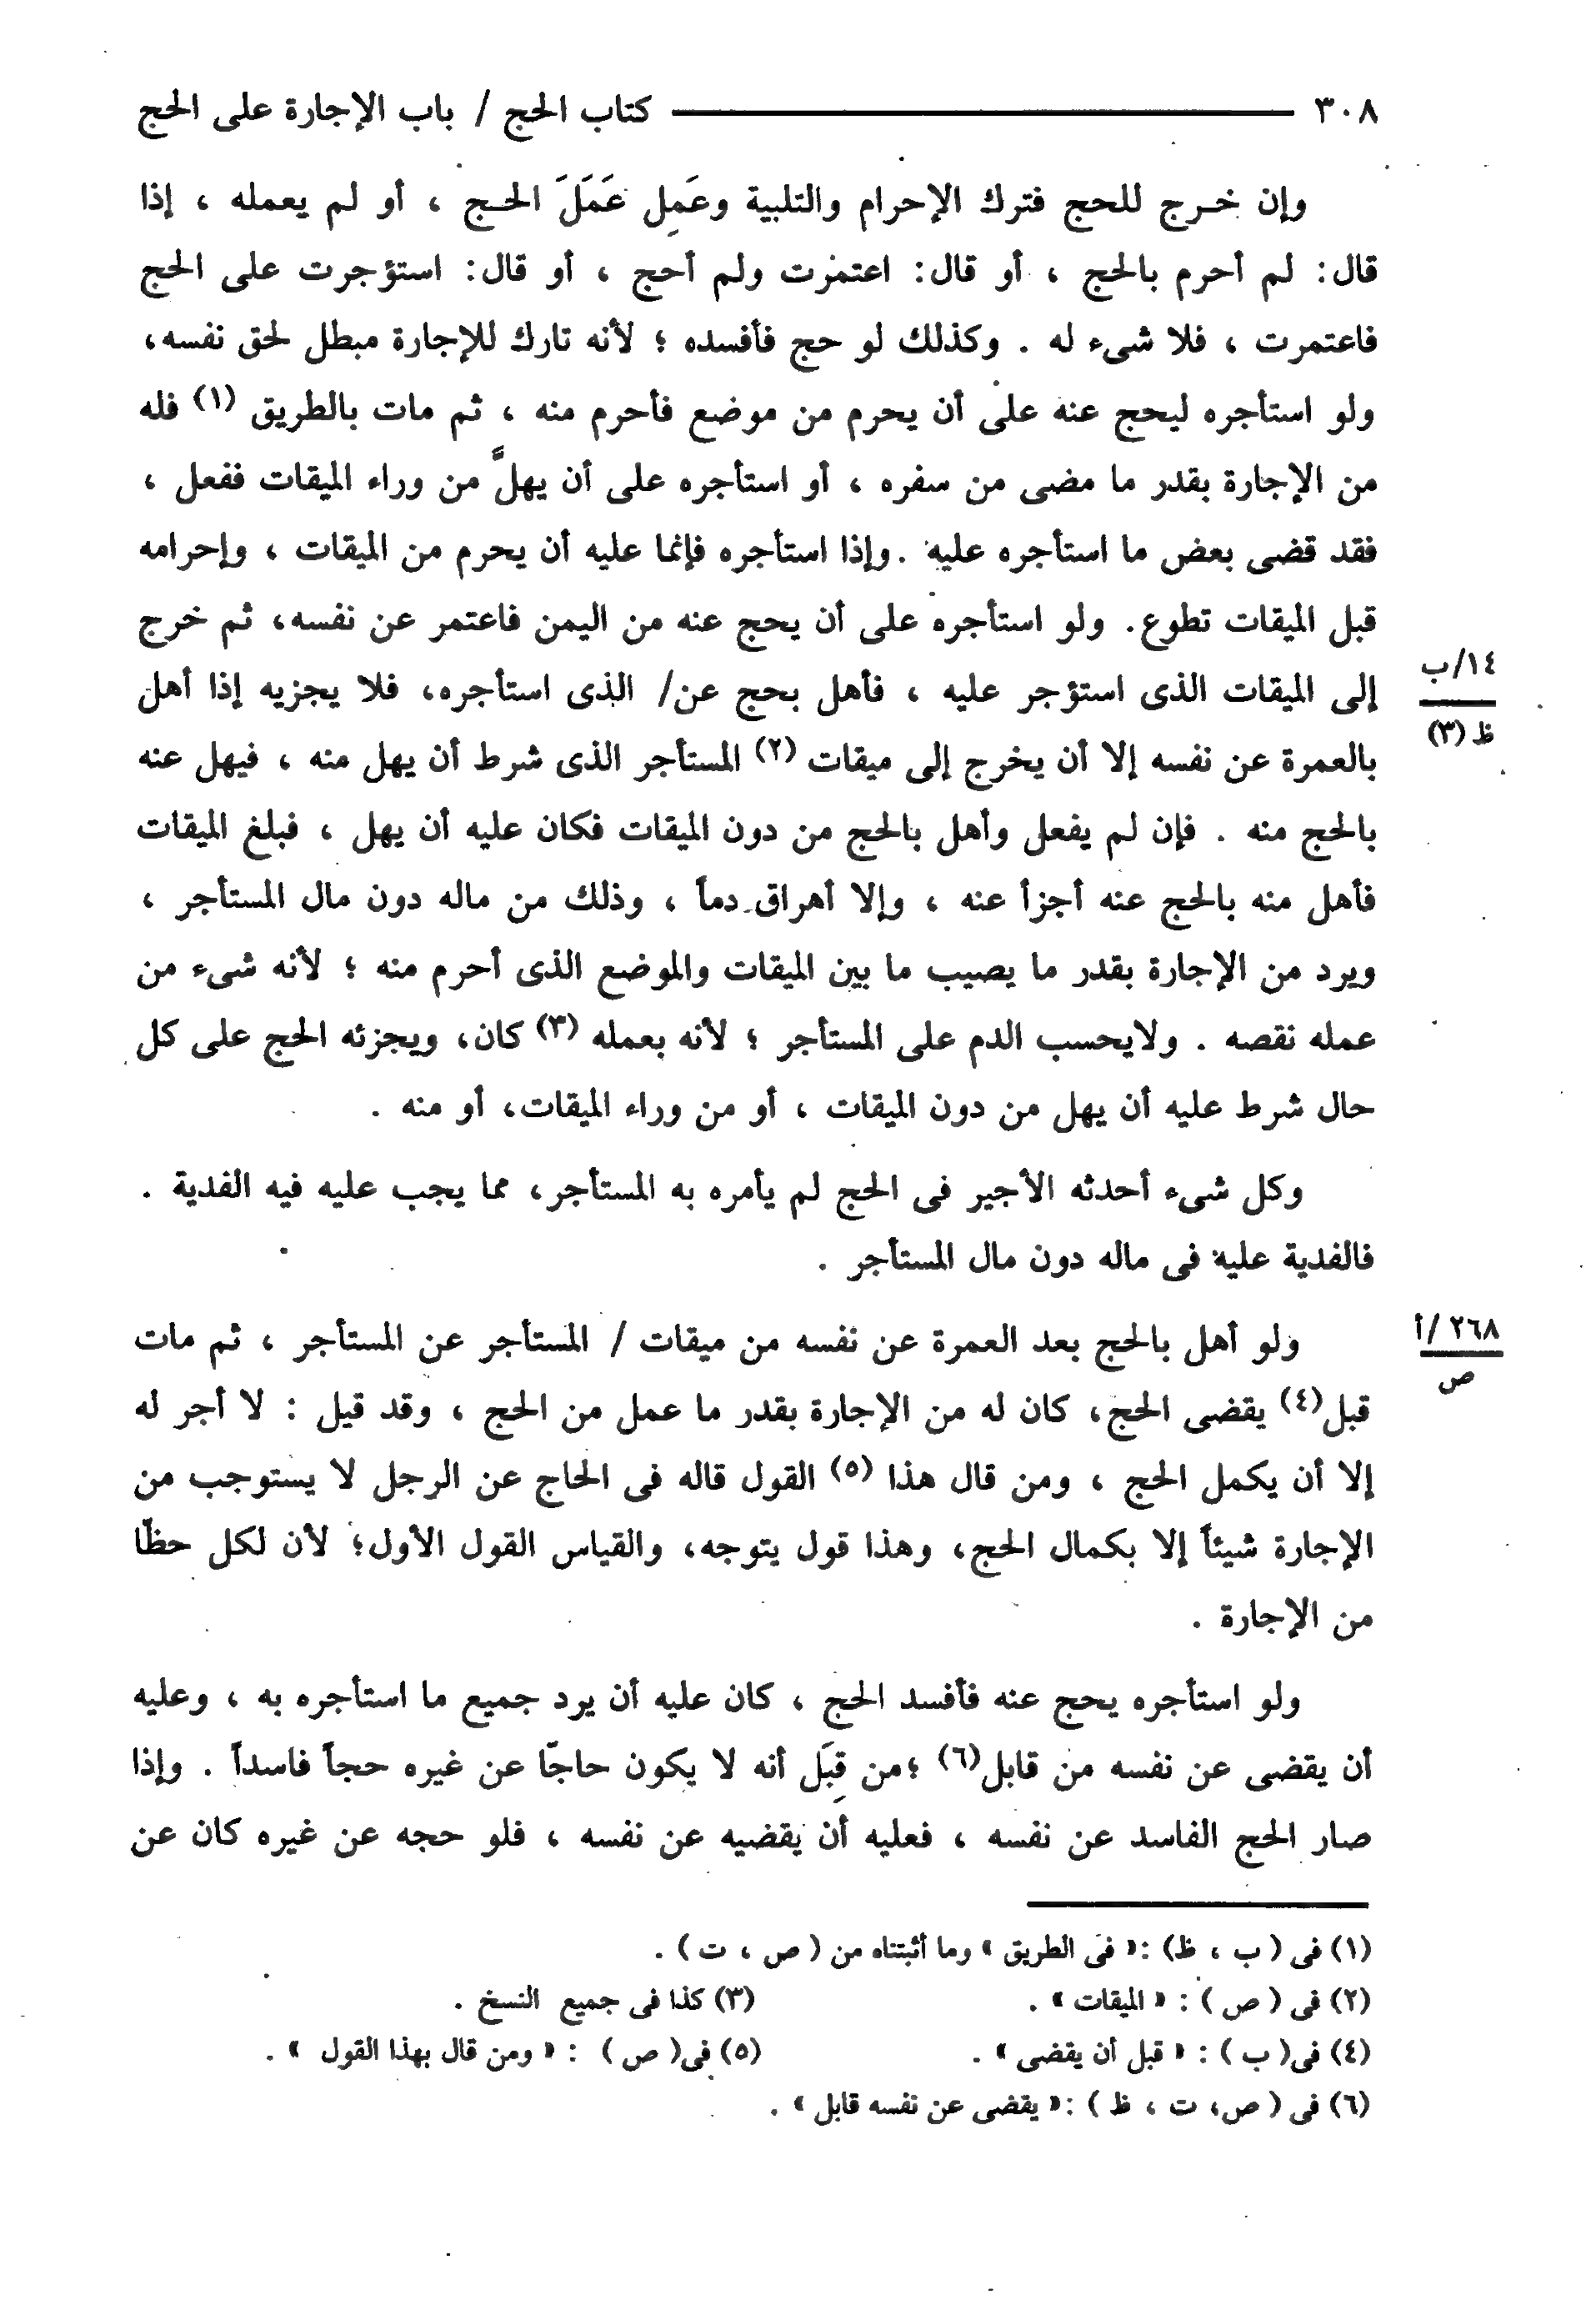 ٣٠٨ كتاب الحج / باب الإجارة على الحج
وإن خرج للحج فترك الإحرام والتلبية وعَمِل عَمَلَ الحج ، أو لم يعمله ، إذا
قال: لم أحرم بالحج ، أو قال: اعتمرت ولم أحج ، أو قال: استؤجرت على الحج
فاعتمرت ، فلا شىء له . وكذلك لو حج فأفسده ؛ لأنه تارك للإجارة مبطل لحق نفسه،
ولو استأجره ليحج عنه على أن يحرم من موضع فأحرم منه ، ثم مات بالطريق (١) فله
من الإجارة بقدر ما مضى من سفره ، أو استأجره على أن يهلَّ من وراء الميقات ففعل ،
فقد قضى بعض ما استأجره عليه .وإذا استأجره فإنما عليه أن يحرم من الميقات ، وإحرامه
قبل الميقات تطوع. ولو استأجره على أن يحج عنه من اليمن فاعتمر عن نفسه، ثم خرج
إلى الميقات الذى استؤجر عليه ، فأهل بحج عن/ الذى استأجره، فلا يجزيه إذا أهل
١٤/ب
ظ (٣)
بالعمرة عن نفسه إلا أن يخرج إلى ميقات (٢) المستأجر الذى شرط أن يهل منه ، فيهل عنه
بالحج منه . فإن لم يفعل وأهل بالحج من دون الميقات فكان عليه أن يهل ، فبلغ الميقات
فأهل منه بالحج عنه أجزأ عنه ، وإلا أهراق دماً ، وذلك من ماله دون مال المستأجر ،
ويرد من الإجارة بقدر ما يصيب ما بين الميقات والموضع الذى أحرم منه ؛ لأنه شىء من
عمله نقصه . ولايحسب الدم على المستأجر ؛ لأنه بعمله (٣) كان، ويجزئه الحج على كل
حال شرط عليه أن يهل من دون الميقات ، أو من وراء الميقات، أو منه .
وكل شىء أحدثه الأجير فى الحج لم يأمره به المستأجر، مما يجب عليه فيه الفدية .
فالفدية عليه فى ماله دون مال المستأجر .
ولو أهل بالحج بعد العمرة عن نفسه من ميقات / المستأجر عن المستأجر ، ثم مات
٢٦٨ /أ
ص
قبل(٤) يقضى الحج، كان له من الإجارة بقدر ما عمل من الحج ، وقد قيل : لا أجر له
إلا أن يكمل الحج ، ومن قال هذا (٥) القول قاله فى الحاج عن الرجل لا يستوجب من
الإجارة شيئاً إلا بكمال الحج، وهذا قول يتوجه، والقياس القول الأول؛ لأن لكل حظّا
من الإجارة .
ولو استأجره يحج عنه فأفسد الحج ، كان عليه أن يرد جميع ما استأجره به ، وعليه
أن يقضى عن نفسه من قابل(٦) ؛من قِبَل أنه لا يكون حاجّا عن غيره حجاً فاسداً . وإذا
صار الحج الفاسد عن نفسه ، فعليه أن يقضيه عن نفسه ، فلو حجه عن غيره كان عن
(١) فى ( ب ، ظ) :« فى الطريق » وما أثبتناه من ( ص ، ت ) .
(٢) فى ( ص ) : « الميقات » . (٣) كذا فى جميع النسخ .
(٤) فى( ب ) : « قبل أن يقضى » . (٥) فى( ص ) : « ومن قال بهذا القول » .
(٦) فى ( ص، ت ، ظ ) :« يقضى عن نفسه قابل » .